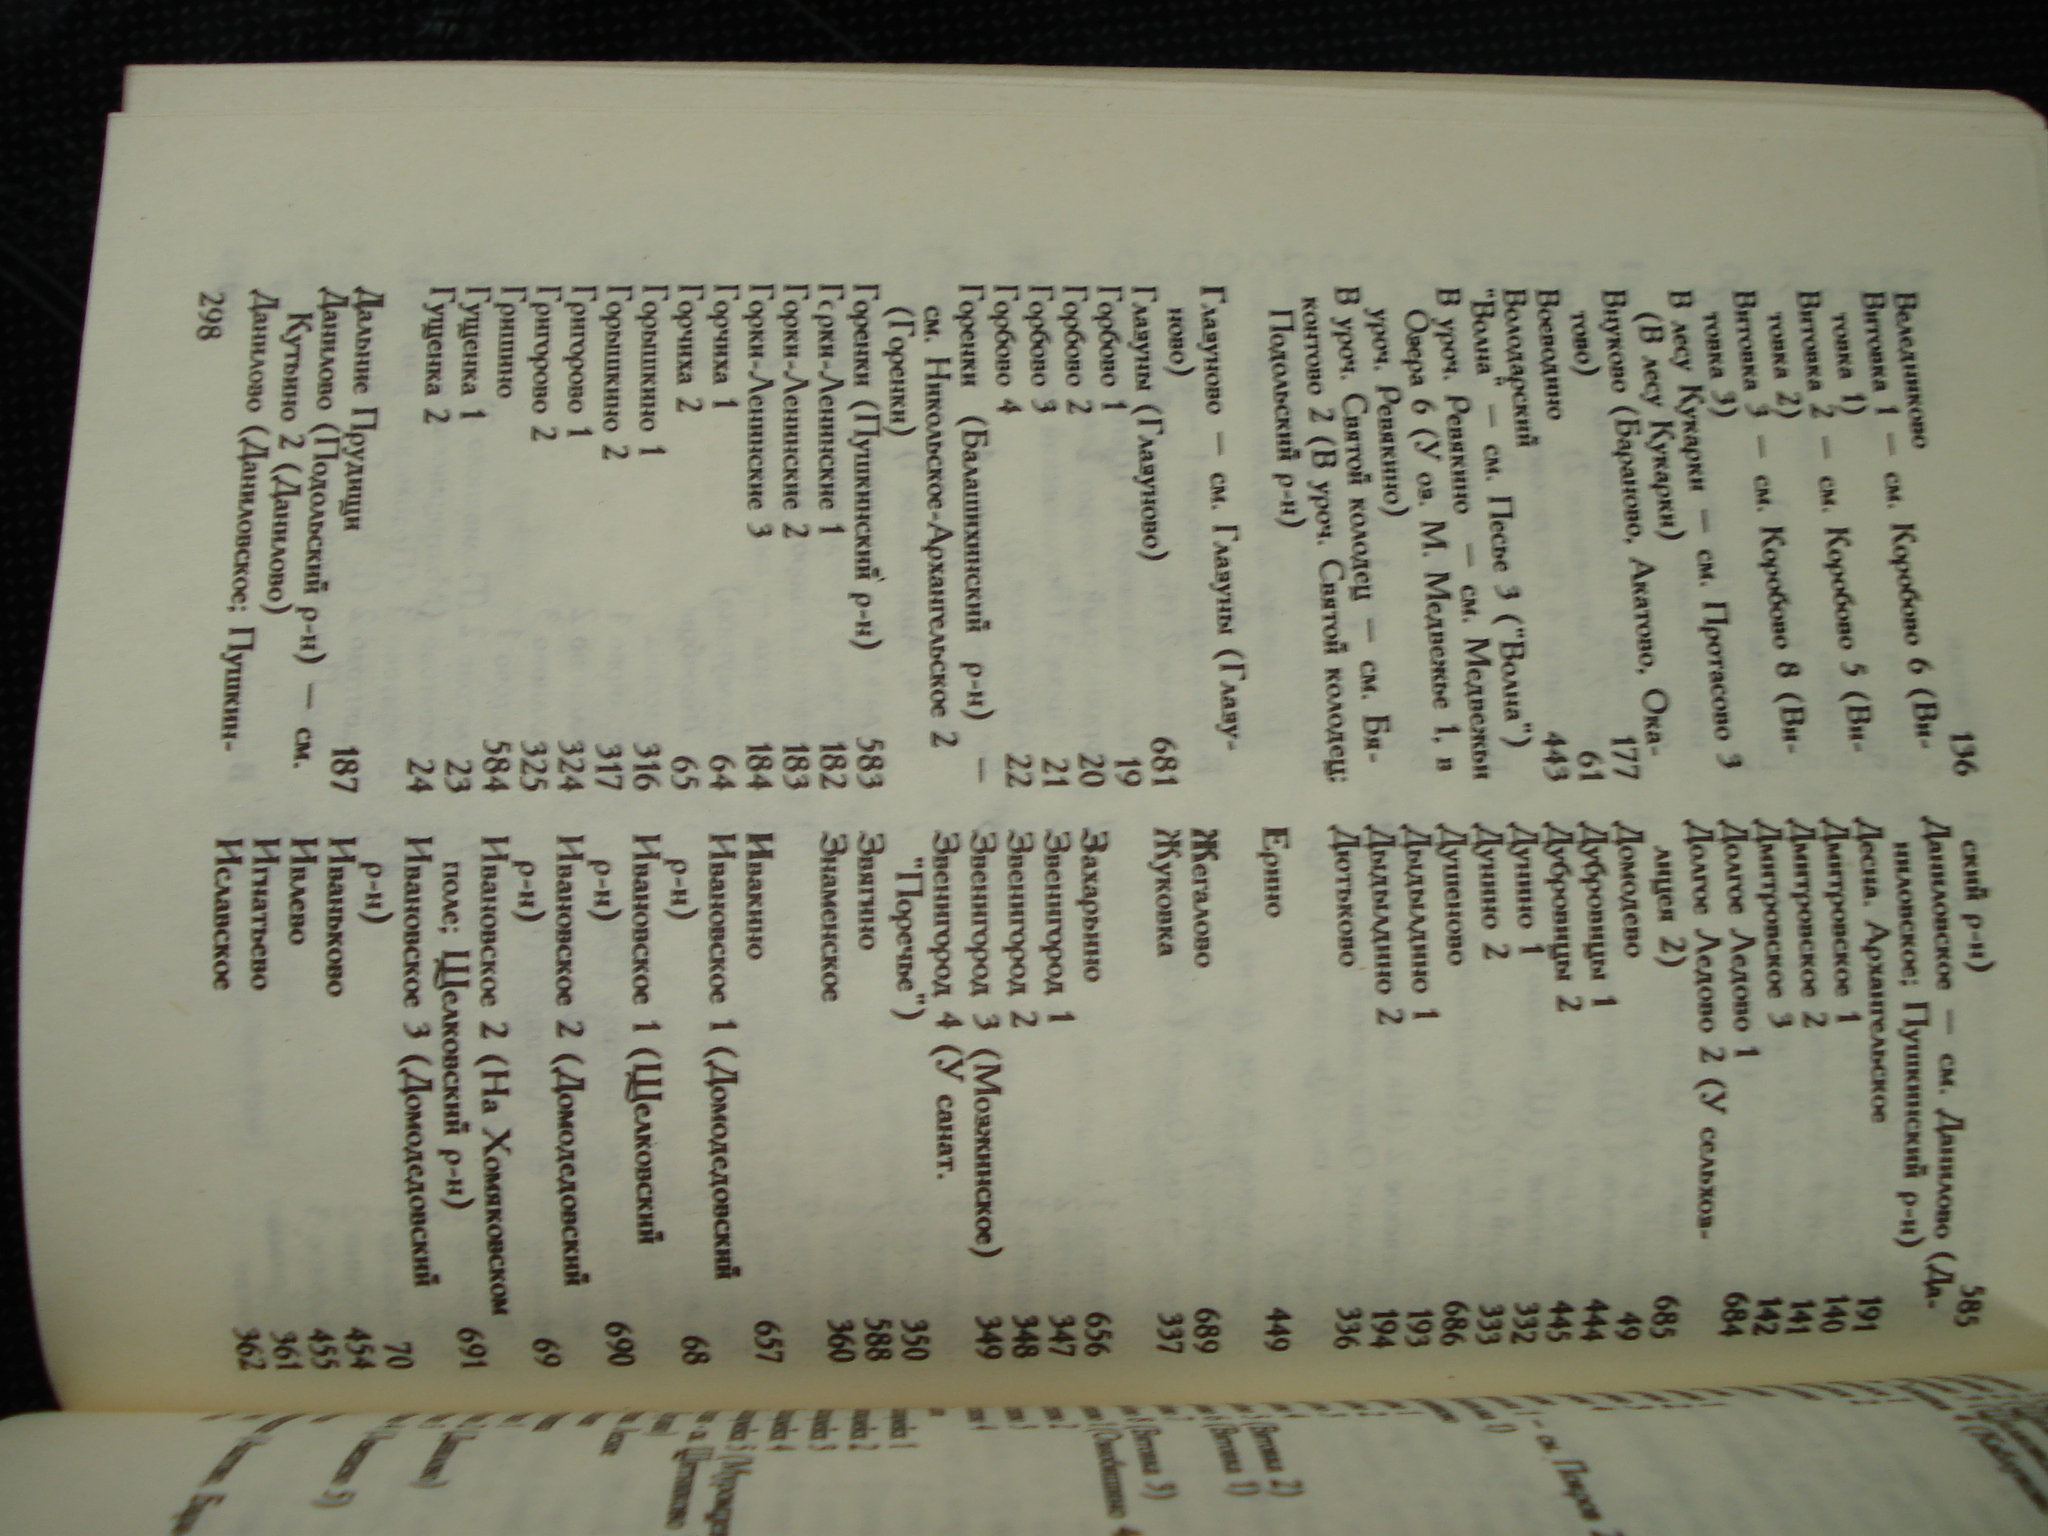 Веледниково 136
Вятовка 1 — см. Коробово 6 (Вя-
товка 1)
Вятовка 2 — см. Коробово 5 (Вя-
товка 2)
Вятовка 3 — см. Коробово 8 (Вя-
товка 3)
В лесу Кукарки — см. Протасово 3
(В лесу Кукарки)
Внуково (Бараново, Акатово, Ока-
тово) 177
Воеводино 61
Володарский 443
"Волна" — см. Песье 3 ("Волна")
В уроч. Ревякино — см. Медвежьи
Озера 6 (У оз. М. Медвежье 1, в
уроч. Ревякино)
В уроч. Святой колодец — см. Бя-
контово 2 (В уроч. Святой колодец;
Подольский р-н)
Глазуново — см. Глазуны (Глазу-
ново)
Глазуны (Глазуново) 681
Горбово 1 19
Горбово 2 20
Горбово 3 21
Горбово 4 22
Горенки (Балашихинский р-н) —
см. Никольское-Архангельское 2
(Горенки)
Горенки (Пушкинский р-н) 583
Горки-Ленинские 1 182
Горки-Ленинские 2 183
Горки-Ленинские 3 184
Горчиха 1 64
Горчиха 2 65
Горышкино 1 316
Горышкино 2 317
Григорово 1 324
Григорово 2 325
Гришино 584
Гущенка 1 23
Гущенка 2 24
Дальние Прудищи 187
Данилово (Подольский р-н) — см.
Кутьино 2 (Данилово)
Данилово (Даниловское; Пушкин-
298
ский р-н) 585
Даниловское — см. Данилово (Да-
ниловское; Пушкинский р-н)
Десна. Архангельское 191
Дмитровское 1 140
Дмитровское 2 141
Дмитровское 3 142
Долгое Ледово 1 684
Долгое Ледово 2 (У сельхоз-
лицея 2) 685
Домодево 49
Дубровицы 1 444
Дубровицы 2 445
Дунино 1 332
Дунино 2 333
Душеново 686
Дыдылдино 1 193
Дыдылдино 2 194
Дютьково 336
Ерино 449
Жегалово 689
Жуковка 337
Захарьино 656
Звенигород 1 347
Звенигород 2 348
Звенигород 3 (Мозжинское) 349
Звенигород 4 (У санат.
"Поречье") 350
Звягино 588
Знаменское 360
Ивакино 657
Ивановское 1 (Домодедовский
р-н) 68
Ивановское 1 (Щелковский
р-н) 690
Ивановское 2 (Домодедовский
р-н) 69
Ивановское 2 (На Хомяковском
поле; Щелковский р-н) 691
Ивановское 3 (Домодедовский
р-н) 70
Иваньково 454
Ивлево 455
Игнатьево 361
Иславское 362